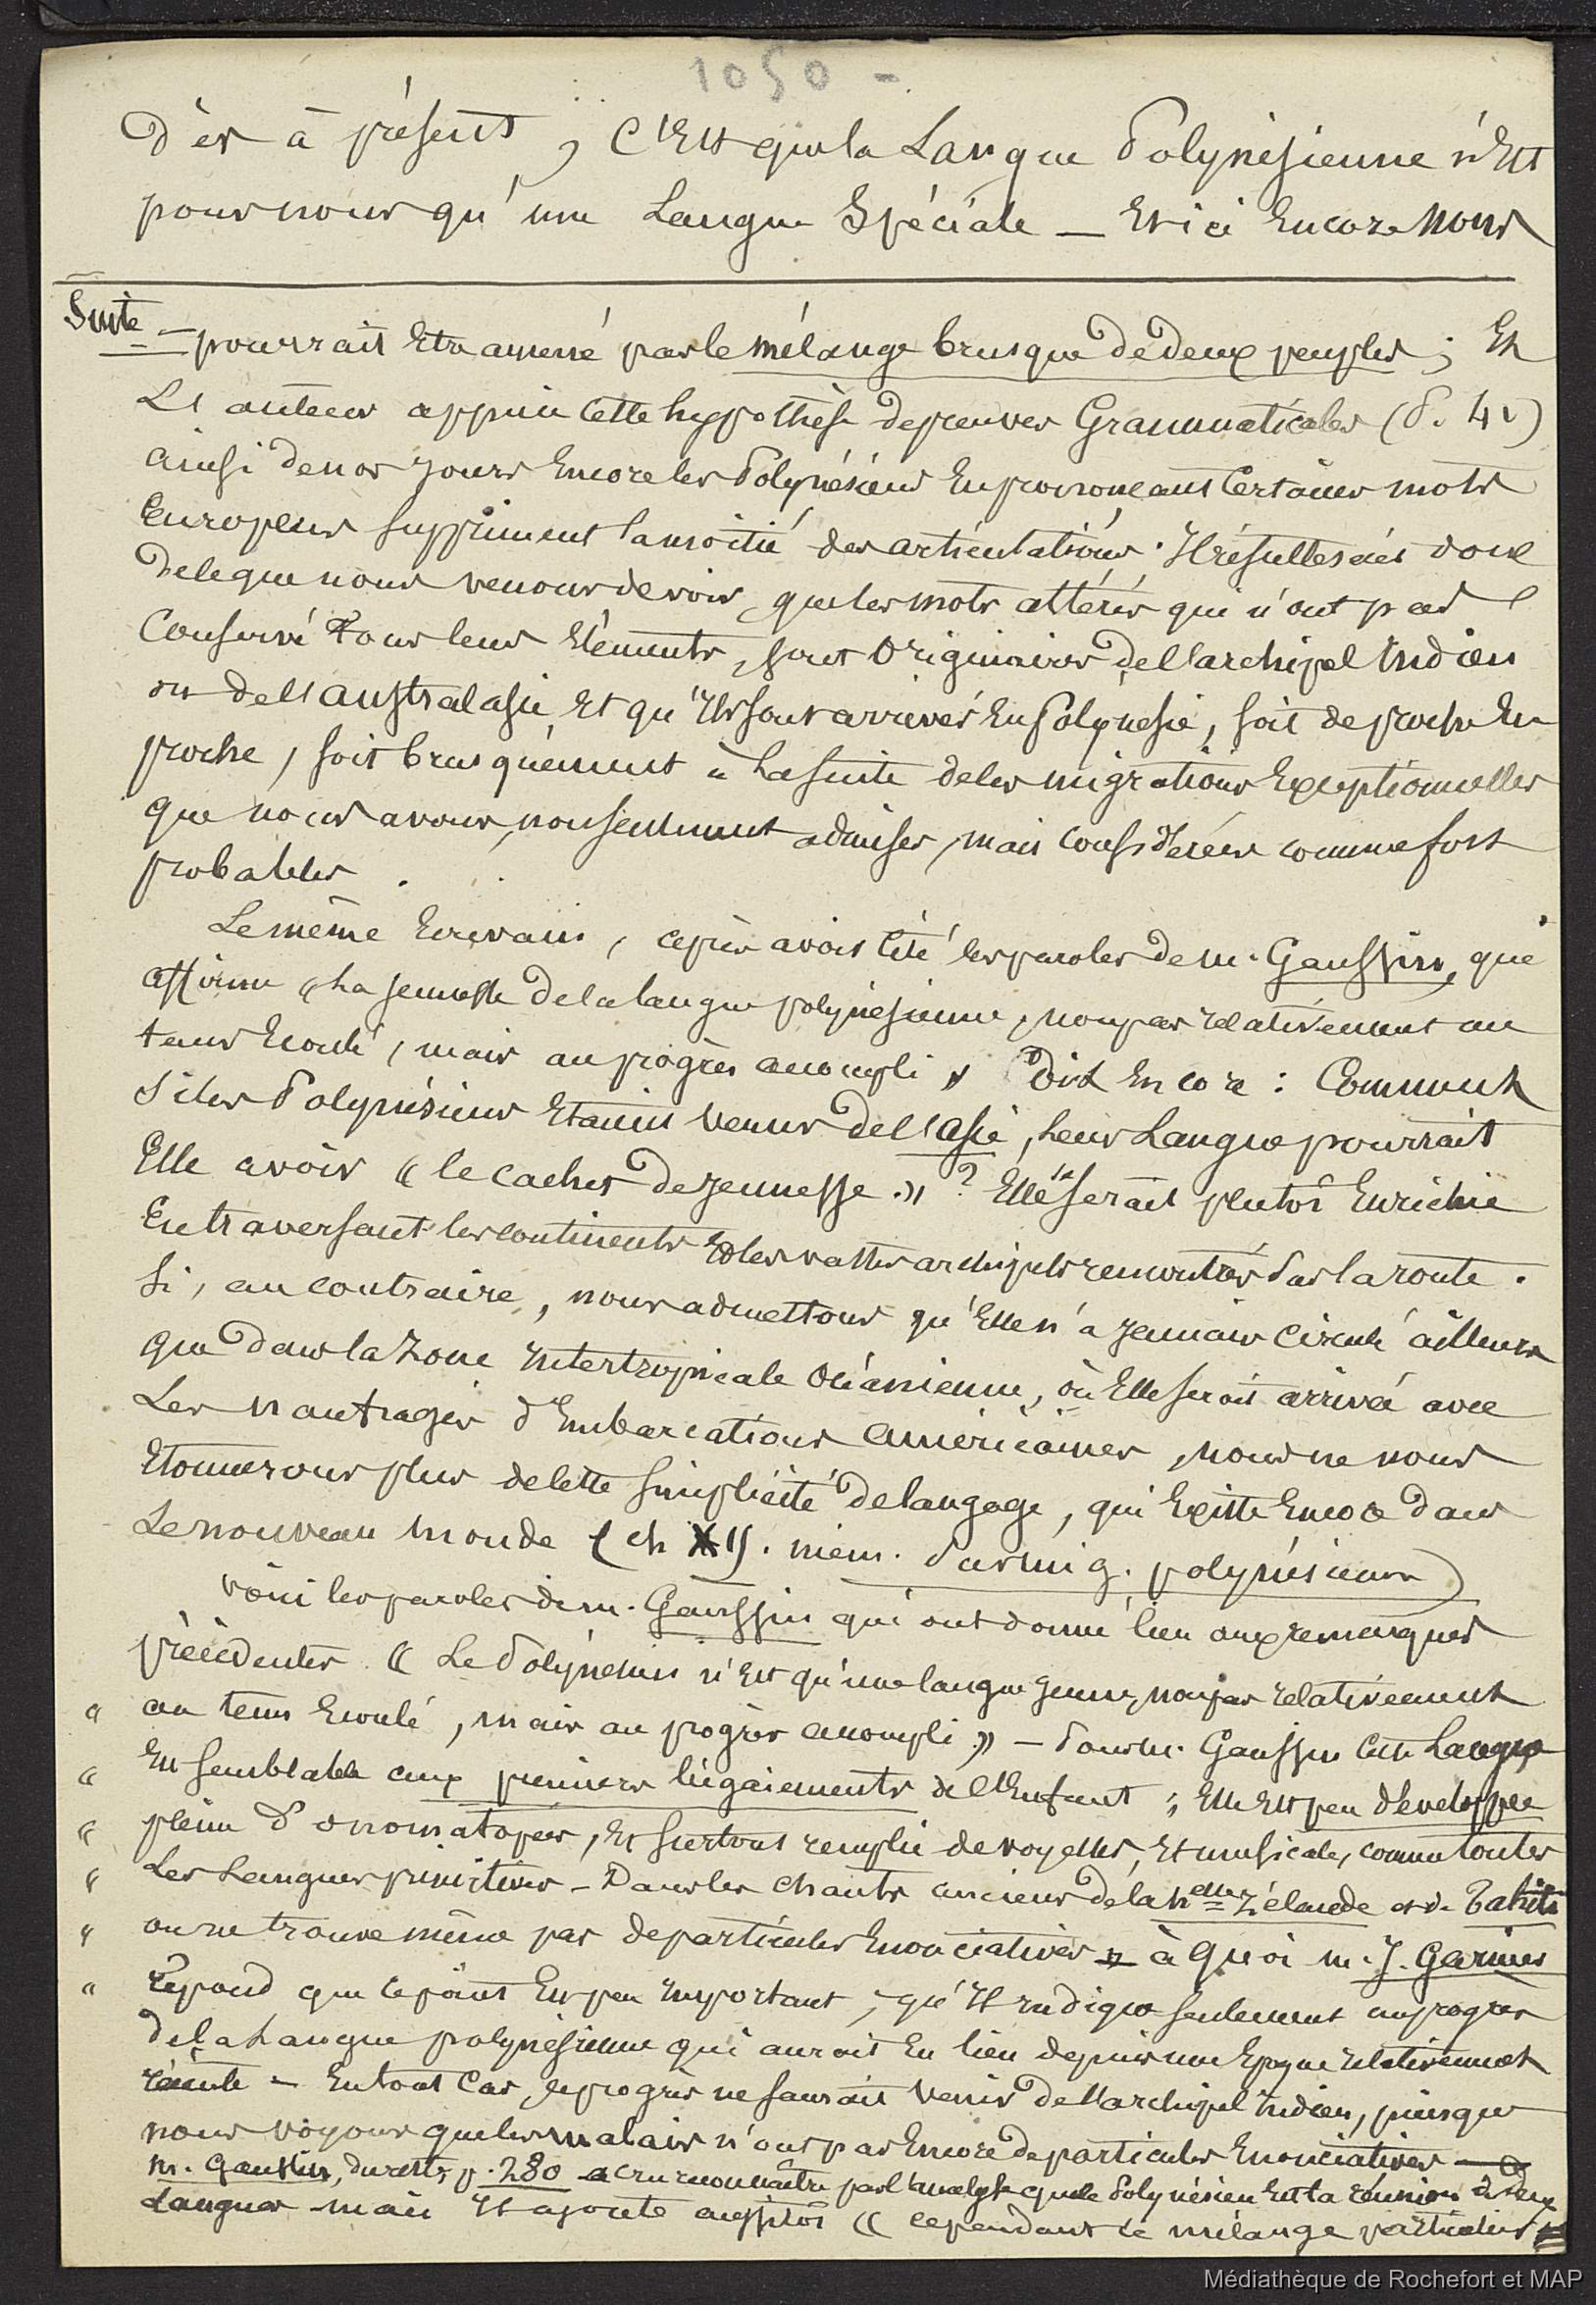 1050 -
Dès à présent, C'Est que la Langue Polynésienne n'Est
pour nous qu'une Langue Spéciale — Et ici Encore nous
Suite — pourrait Etre amené par le mélange brusque de deux peuples ; Et
L'auteur appuie Cette hypothèse de preuves Grammaticales (P. 41)
ainsi de nos jours Encore les Polynésiens En prononçant Certains mots
Européens suppriment la moitié des articulations. Il résulterait donc
De ce que nous venons de voir, que les mots altérés qui n'ont pas
Conservé Tous leurs Eléments, sont Originaires de l'archipel Indien
ou de l'australasie Et qu'Ils sont arrivés En Polynésie, soit de proche En
proche, soit brusquement à La suite de ces migrations Exceptionnelles
que nous avons, non seulement admises, mais considérées comme fort
probables.
Le même Ecrivain, après avoir Cité les paroles de m. Gaussin, qui
affirme « La jeunesse de la langue polynésienne, non pas relativement au
tems Ecoulé, mais au progrès accompli » Dit Encore : Comment
si les Polynésiens Etaient venus de l'asie, Leur Langue pourrait
Elle avoir « le cachet de jeunesse » ? Elle se serait plutôt Enrichie
En traversant les continents Et les vastes archipels rencontrés sur la route.
Si, au contraire, nous admettons qu'Elle n'a jamais Circulé ailleurs
que dans la Zone Intertropicale Océanienne, où Elle serait arrivée avec
Les naufragés d'Embarcations américaines, nous ne nous
Etonnerons plus de cette simplicité de langage, qui Existe Encore dans
Le nouveau monde (ch XII. mém. sur mig. polynésiennes)
voici les paroles de m. Gaussin qui ont donné lieu aux remarques
précédentes « Le Polynésien n'Est qu'une langue jeune, non pas relativement
" au tems Ecoulé, mais au progrès accompli » — Pour m. Gaussin Cette Langue
" Est semblable aux premiers bégaiements de l'Enfant ; Elle Est peu développée
" pleine d'onomatopées, Et surtout remplie de voyelles, Et musicale, comme toutes
" Les Langues primitives — Dans les chants anciens de la Nelle Zélande et de Tahiti
" on ne trouve même pas de particules Enonciatives — à quoi m. J. Garnier
" répond que ce point Est peu Important, qu'Il Indique seulement un progrès
de la Langue polynésienne qui aurait Eu lieu depuis une Epoque relativement
récente — En tout Cas, ce progrès ne saurait venir de l'archipel Indien, puisque
nous voyons que les malais n'ont pas Encore de particules Enonciatives —
m. Gaussin, du reste, p. 280 a cru reconnaître par l'analyse que le Polynésien Est la réunion de deux
Langues mais Il ajoute aussitôt « cependant ce mélange particulier
Médiathèque de Rochefort et MAP